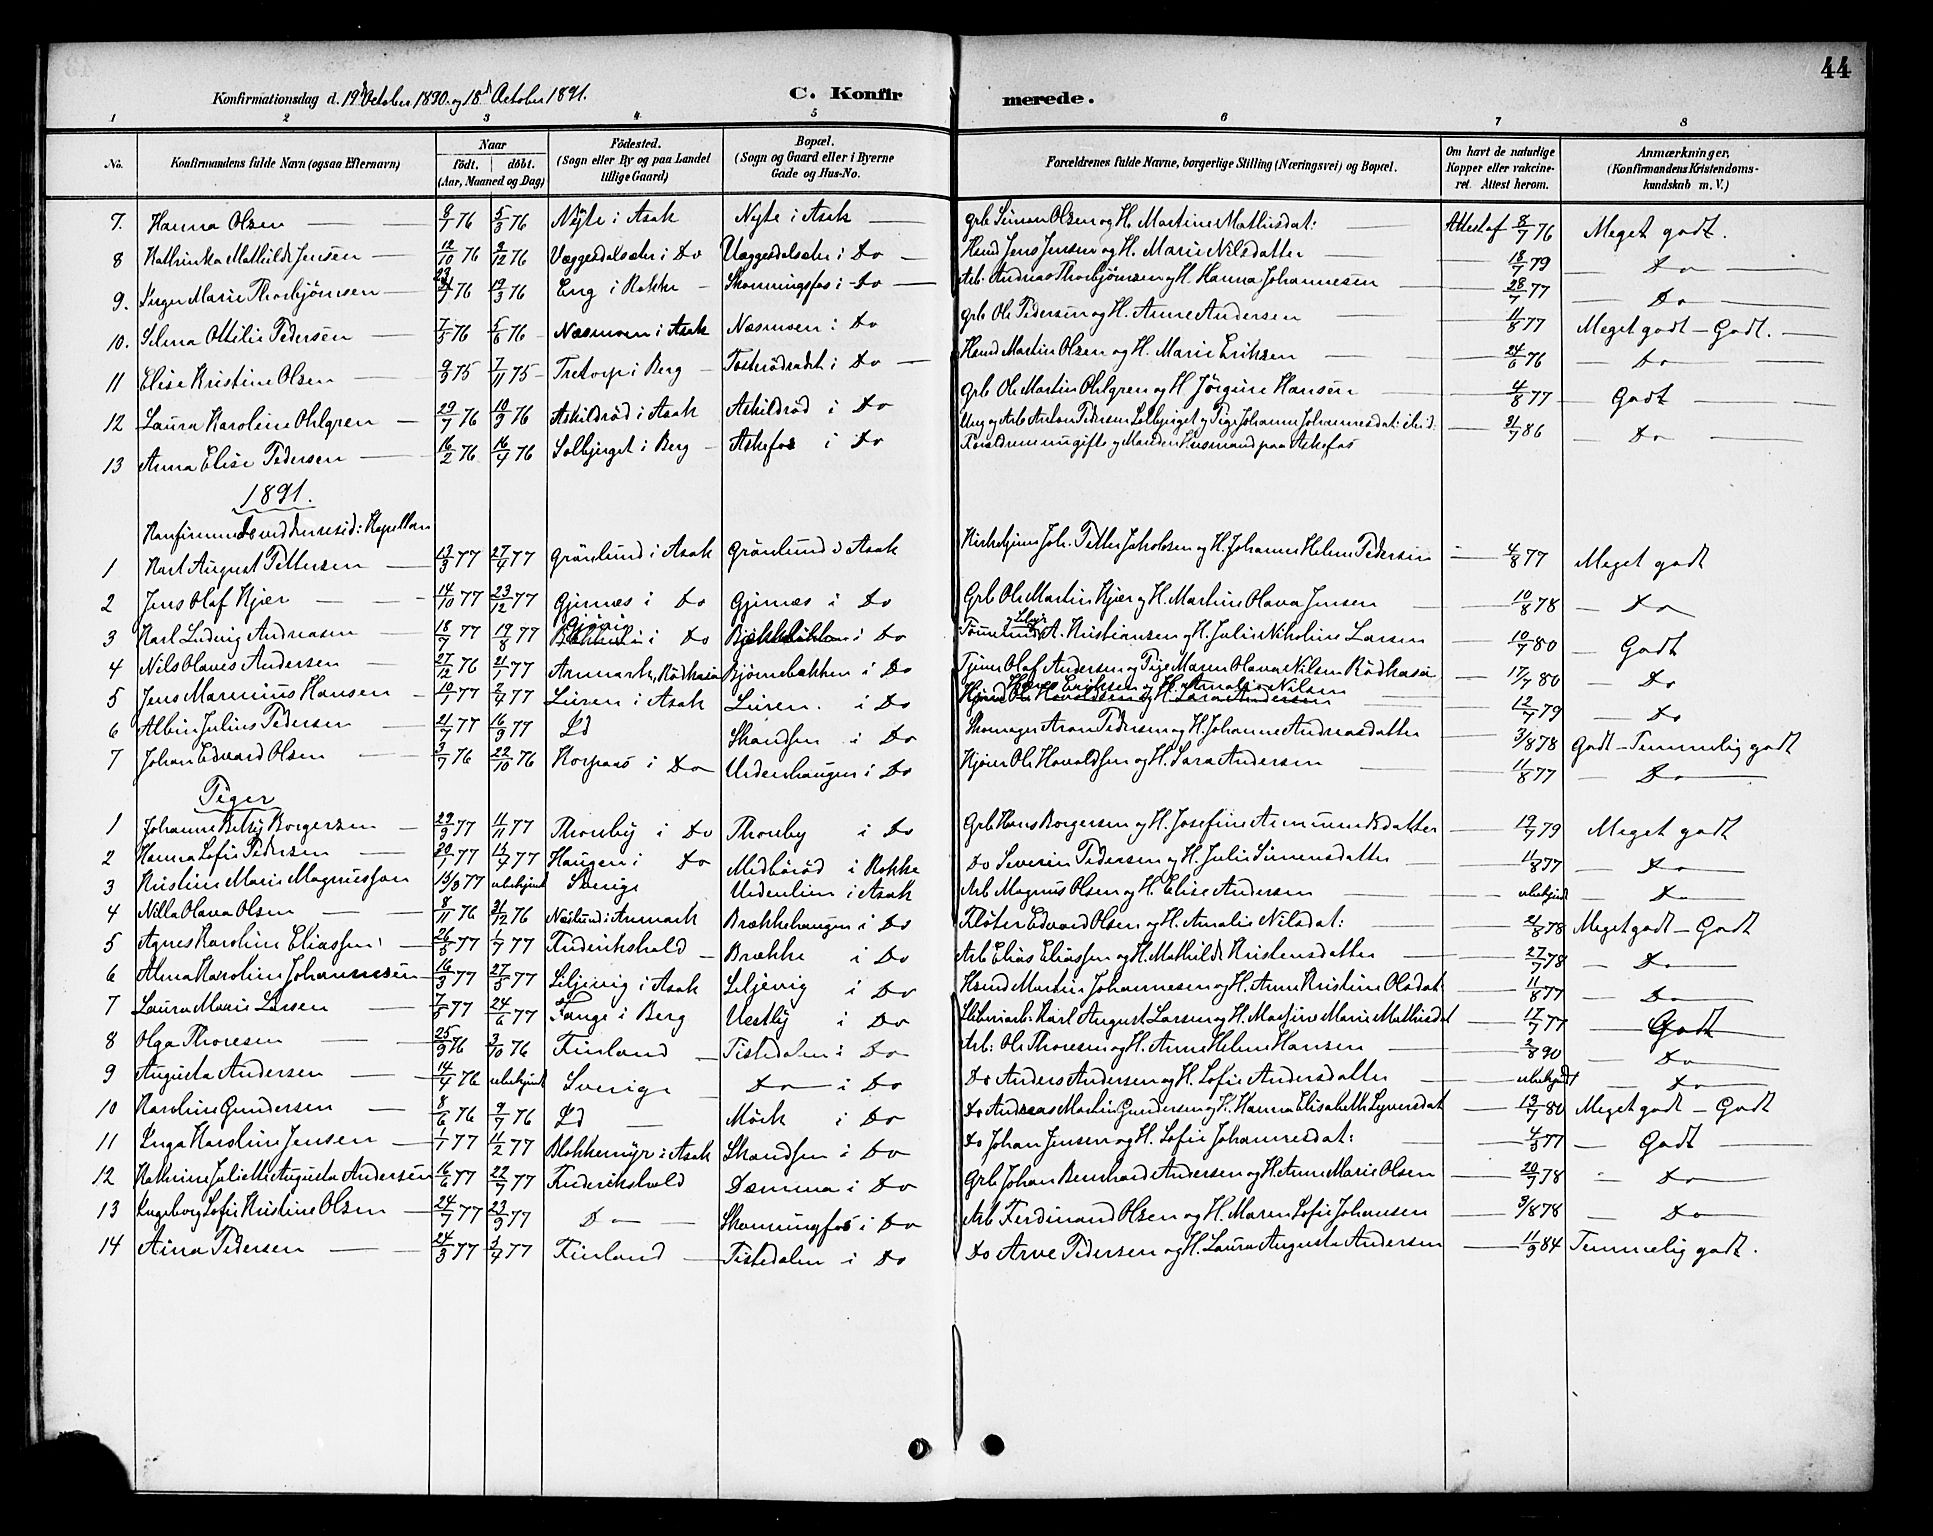 44
Konfirmationsdag d. 19d October 1890. og 18d October 1891. C. Konfirmerede.
1 2 3 4 5 6 7 8
No. Konfirmandens fulde Navn (ogsaa Efternavn) Naar født. døbt. (Aar, Maaned og Dag) Födested. (Sogn eller By og paa Landet tillige Gaard) Bopæl. (Sogn og Gaard eller i Byerne Gade og Hus-No. Forældrenes fulde Navne, borgerlige Stilling (Næringsvei) og Bopæl. Om havt de naturlige Kopper eller vakcineret. Attest herom. Anmærkninger, (Konfirmandens Kristendomskundskab m. V.)
7. Hanna Olsen 9/1 76 5/3 76 Nyte i Asak Nyte i Asak Grb Simon Olsen og H. Martine Mathisdat: Attest af 8/7 76 Meget godt.
8 Kathinka Mathilde Jensen 12/10 76 9/12 76 Væggesdalsæter i Do Væggesdalsæter i Do Hsmd Jens Jensen og H. Marie Nilsdatter 18/7 79 Do
9. Inger Marie Thorbjørnsen 76 19/3 76 Eng i Rokke Skonningsfos i Do Arb. Andreas Thorbjörnsen og H. Hanna Johannesen 28/7 77 Do
10. Selma Othilie Pedersen 7/5 76 5/6 76 Næsmoen i Asak Næsmoen i Do Grb Ole Pedersen og H. Anne Andersen 11/8 77 Meget godt - Godt.
11 Elise Kristine Olsen 9/3 75 7/11 75 Tretorp i Berg Fosterödradet i Do Hsmd Martin Olsen og H. Marie Eriksen 24/6 76 Do
12 Laura Karoline Ohlgren 29/7 76 10/9 76 Askildröd i Asak Askildröd i Do Grb Ole Martin Ohlgren og H. Jörgine Hansen 4/8 77 Godt
13 Anna Elise Pedersen 16/2 76 16/4 76 Solbjerget i Berg Askefos i Do Ung og Arb Anton Pedersen Solbjerget og Pige Johanne Johannesdat: ibid: Forældrene nu gifte og Manden Husmand paa Askefos 31/7 86 Do
1891.
Konfirmerede ved res: Kapellan
1 Karl August Pettersen 13/3 77 27/4 77 Grönlund i Asak Grönlund i Asak Kirketjener Joh. Petter Jakobsen og H. Johanne Helene Pedersen 4/8 77 Meget godt
2 Jens Olaf Kjær 14/10 77 23/12 77 Gjernæs i Do Gjernæs i Do Grb Ole Martin Kjær og H. Martine Olava Jensen 10/8 78 Do
3 Karl Ludvig Andreasen 18/7 77 19/8 77 i Do Bjökkebakken i Do Tömmermd A. Kristiansen og H. Julie Nikoline Larsen 10/7 80 Godt
4 Nils Olaves Andersen 27/12 76 21/1 77 Aremark, Rödkasa Bjørnebakken i Do Tjener Olaf Andersen og Pige Maren Olava Nilsen Rödkasa 17/7 80 Do
5 Jens Marenius Hansen 10/1 77 2/4 77 Liiren i Asak Liiren. i Do Hans Eriksen og H. Amalie Nilsen 12/7 79 Do
6 Albin Julius Pedersen 21/7 77 16/9 77 Id Skandsen i Do Skomager Aron Pedersen og H. Johanne Andreasdatter 3/8 78 Godt - Temmelig godt
7 Johan Edvard Olsen 3/7 76 22/10 76 Korpaas i Do Urdenhaugen i Do Kjører Ole Havaldsen og H. Sara Andersen 11/8 77 Do
Piger
1 Johanne Betsy Borgersen 29/9 77 11/11 77 Thorsby i Do Thorsby i Do Grb Hans Borgersen og H. Josefine Asmundsdatter 19/7 79 Meget godt
2 Hanna Sofie Pedersen 20/1 77 15/4 77 Haugen i Do Medböröd i Rokke Do Severin Pedersen og H. Julie Simensdatter 11/8 77 Do
3 Kristine Marie Magnussen 15/3 77 ubekjendt Sverige Urdenlien i Asak Arb Magnus Olsen og H. Elise Andersen ubekjend Do
4 Nilla Olava Olsen 8/11 76 31/12 76 Næslund i Aremark Brækkehaugen i Do Fløter Edvard Olsen og H. Amalie Nilsdat: 21/8 78 Meget godt - Godt
5 Agnes Karoline Eliassen 26/5 77 1/7 77 Frederikshald Brække i Do Arb Elias Eliassen og H. Mathilde Kristensdatter 27/7 78 Do
6 Alma Karoline Johannesen 16/3 77 27/5 77 Liljevig i Asak Liljevig i Do Hsmd Martin Johannesen og H. Anne Kristine Olsdat 11/8 77 Do
7 Laura Marie Larsen 7/5 77 24/6 77 Fange i Berg Vestby i Do Sliberiarb: Karl August Larsen og H. Martine Marie Mathisdat 17/7 77 Godt
8 Olga Thoresen 25/9 76 3/10 76 Finland Tistedalen i Do Arb: Ole Thoresen og H. Anne Helene Hansen 2/8 90 Do
9 Augusta Andersen 14/4 76 ubekjendt Sverige Do i Do Do Anders Andersen og H. Sofie Andersdatter ubekjendt Do
10 Karoline Gundersen 8/6 76 9/7 76 Id Mörk i Do Do Andreas Martin Gundersen og H. Hanna Elisabeth Syversdat 13/7 80 Meget godt - Godt
11 Inga Karoline Jensen 1/1 77 11/2 77 Blokkemyr i Asak Skandsen i Do Do Johan Jensen og H. Sofie Johannesdat: 4/3 77 Godt
12 Kathrine Juliette Augusta Andersen 16/6 77 22/7 77 Frederikshald Damma i Do Grb Johan Bernhard Andersen og H. Anne Marie Olsen 20/7 78 Do
13 Ingeborg Sofie Kristine Olsen 24/7 77 23/9 77 Do Skonningfos i Do Arb Ferdinand Olsen og H. Maren Sofie Johansen 3/8 78 Do
14 Aina Pedersen 24/3 77 3/4 77 Finland Tistedalen i Do Do Arve Pedersen og H. Laura Augusta Andersen 11/9 84 Temmelig godt.